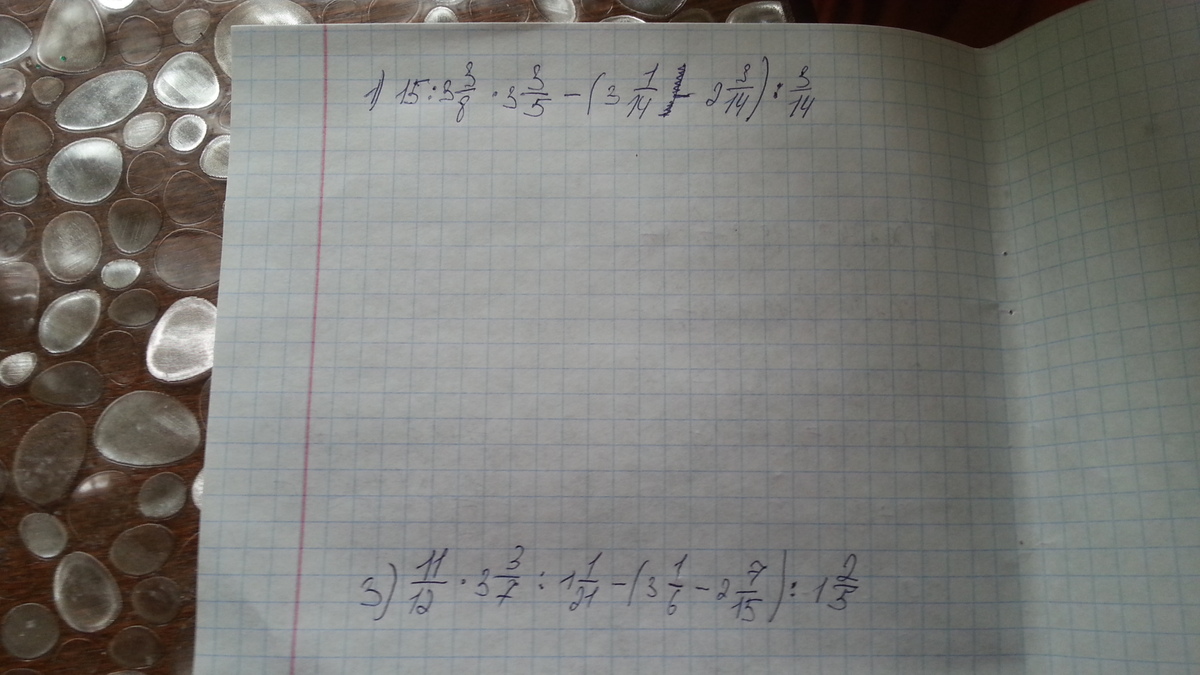 1) 15 : 3 3/8 · 3 3/5 - (3 1/14 - 2 3/14) : 3/14
3) 11/12 · 3 3/7 : 1 1/21 - (3 1/6 - 2 7/15) : 1 2/5